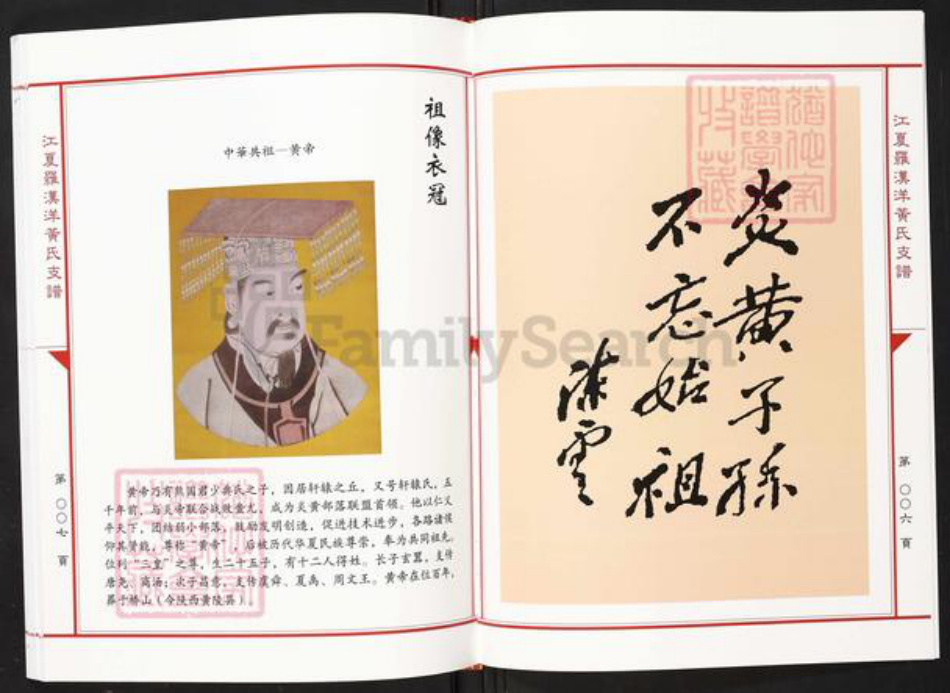 江夏羅漢洋黃氏支譜
第〇〇六頁
炎黄子孫
不忘始祖
陈雲
猶他家
譜學會
收藏
祖像衣冠
中華共祖—黄帝
黄帝乃有熊国君少典氏之子，因居轩辕之丘，又号轩辕氏，五
千年前，与炎帝联合战败蚩尤，成为炎黄部落联盟首领。他以仁义
平天下，团结弱小部落，鼓励发明创造，促进技术进步，各路诸侯
仰其贤能，尊称“黄帝”，后被历代华夏民族尊崇，奉为共同祖先，
位列“三皇”之尊，生二十五子，有十二人得姓。长子玄嚣，支传
唐尧、商汤；次子昌意，支传虞舜、夏禹、周文王。黄帝在位百年，
葬于桥山（今陕西黄陵县）。
江夏羅漢洋黃氏支譜
第〇〇七頁
FamilySearch